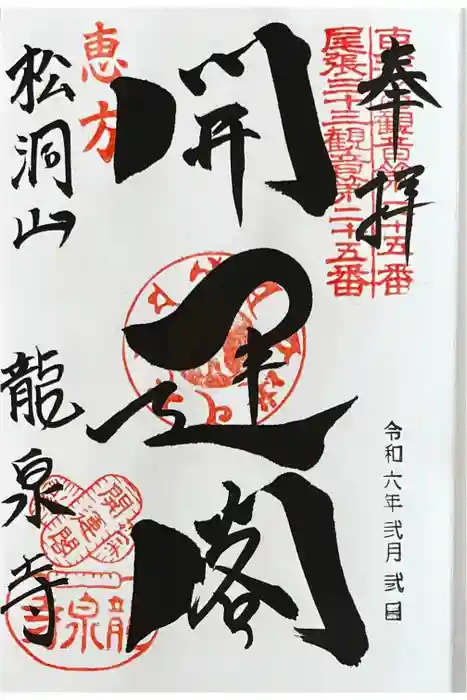 奉拝
東海三十三観音第二十五番
尾張三十三観音第二十五番
令和六年弐月弐日
開運閣
恵方
松洞山
龍泉寺
開運閣
龍泉寺